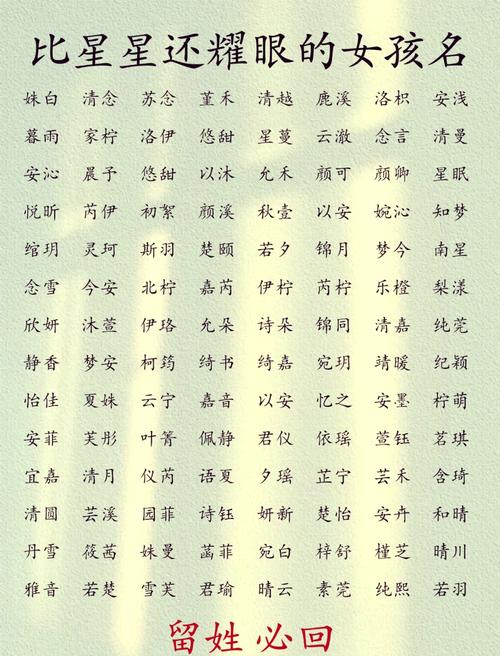 比星星还耀眼的女孩名
姝白 清念 苏念 堇禾 清越 鹿溪 洛枳 安浅
暮雨 家柠 洛伊 悠甜 星蔓 云澈 念言 清曼
安沁 晨予 悠甜 以沐 允禾 颜可 颜卿 星眠
悦昕 芮伊 初絮 颜溪 秋壹 以安 婉沁 知梦
绾玥 灵珂 斯羽 楚颐 若夕 锦月 梦今 南星
念雪 今安 北柠 嘉芮 伊柠 芮柠 乐橙 梨漾
欣妍 沐萱 伊珞 允朵 诗朵 锦同 清嘉 纯莞
静香 梦安 柯筠 绮书 绮嘉 宛玥 靖暖 纪颖
怡佳 夏姝 云宁 嘉音 以安 忆之 安墨 柠萌
安菲 芙彤 叶箐 佩静 君仪 依瑶 萱钰 茗琪
宜嘉 清月 仪芮 语夏 夕瑶 芷宁 芸禾 含琦
清圆 芸溪 园菲 诗钰 妍新 楚怡 安卉 和晴
丹雪 筱茜 姝曼 菡菲 宛白 梓舒 槿芝 晴川
雅音 若楚 雪芙 君瑜 晴云 素莞 纯熙 若羽
留姓 必回